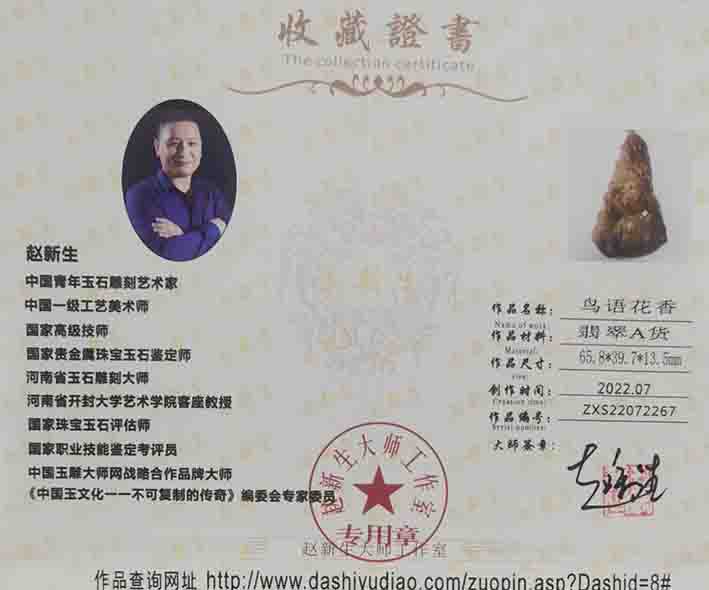 收藏證書
The collection certificate
赵新生
中国青年玉石雕刻艺术家
中国一级工艺美术师
国家高级技师
国家贵金属珠宝玉石鉴定师
河南省玉石雕刻大师
河南省开封大学艺术学院客座教授
国家珠宝玉石评估师
国家职业技能鉴定考评员
中国玉雕大师网战略合作品牌大师
《中国玉文化一一不可复制的传奇》编委会专家委员
作品名称： 鸟语花香
Name of work:
作品材料： 翡翠A货
Material:
作品尺寸： 65.8*39.7*13.5mm
size:
创作时间： 2022.07
Creation time:
作品编号： ZXS22072267
Serial number:
大师签章：
赵新生
赵新生大师工作室
专用章
赵新生大师工作室
作品查询网址 http://www.dashiyudiao.com/zuopin.asp?Dashid=8#